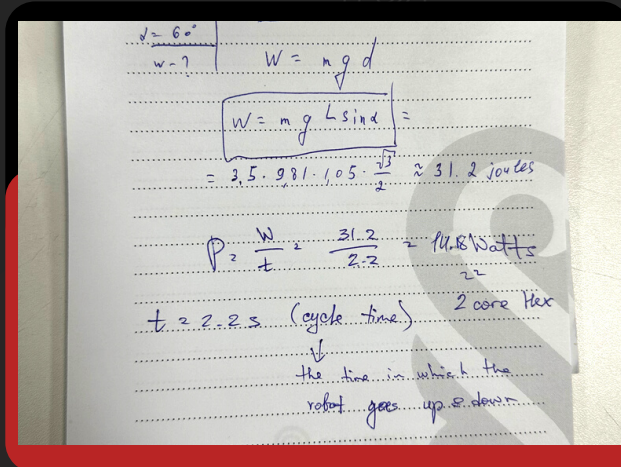 α = 60°
W - ?
W = m g d
W = m g L sin α =
= 3,5 · 9,81 · 1,05 · √3/2 ≈ 31.2 joules
P = W/t = 31.2/2.2 = 14.18 Watts
22
t = 2.2 s (cycle time) 2 core Hex
↓
the time in which the
robot goes up & down